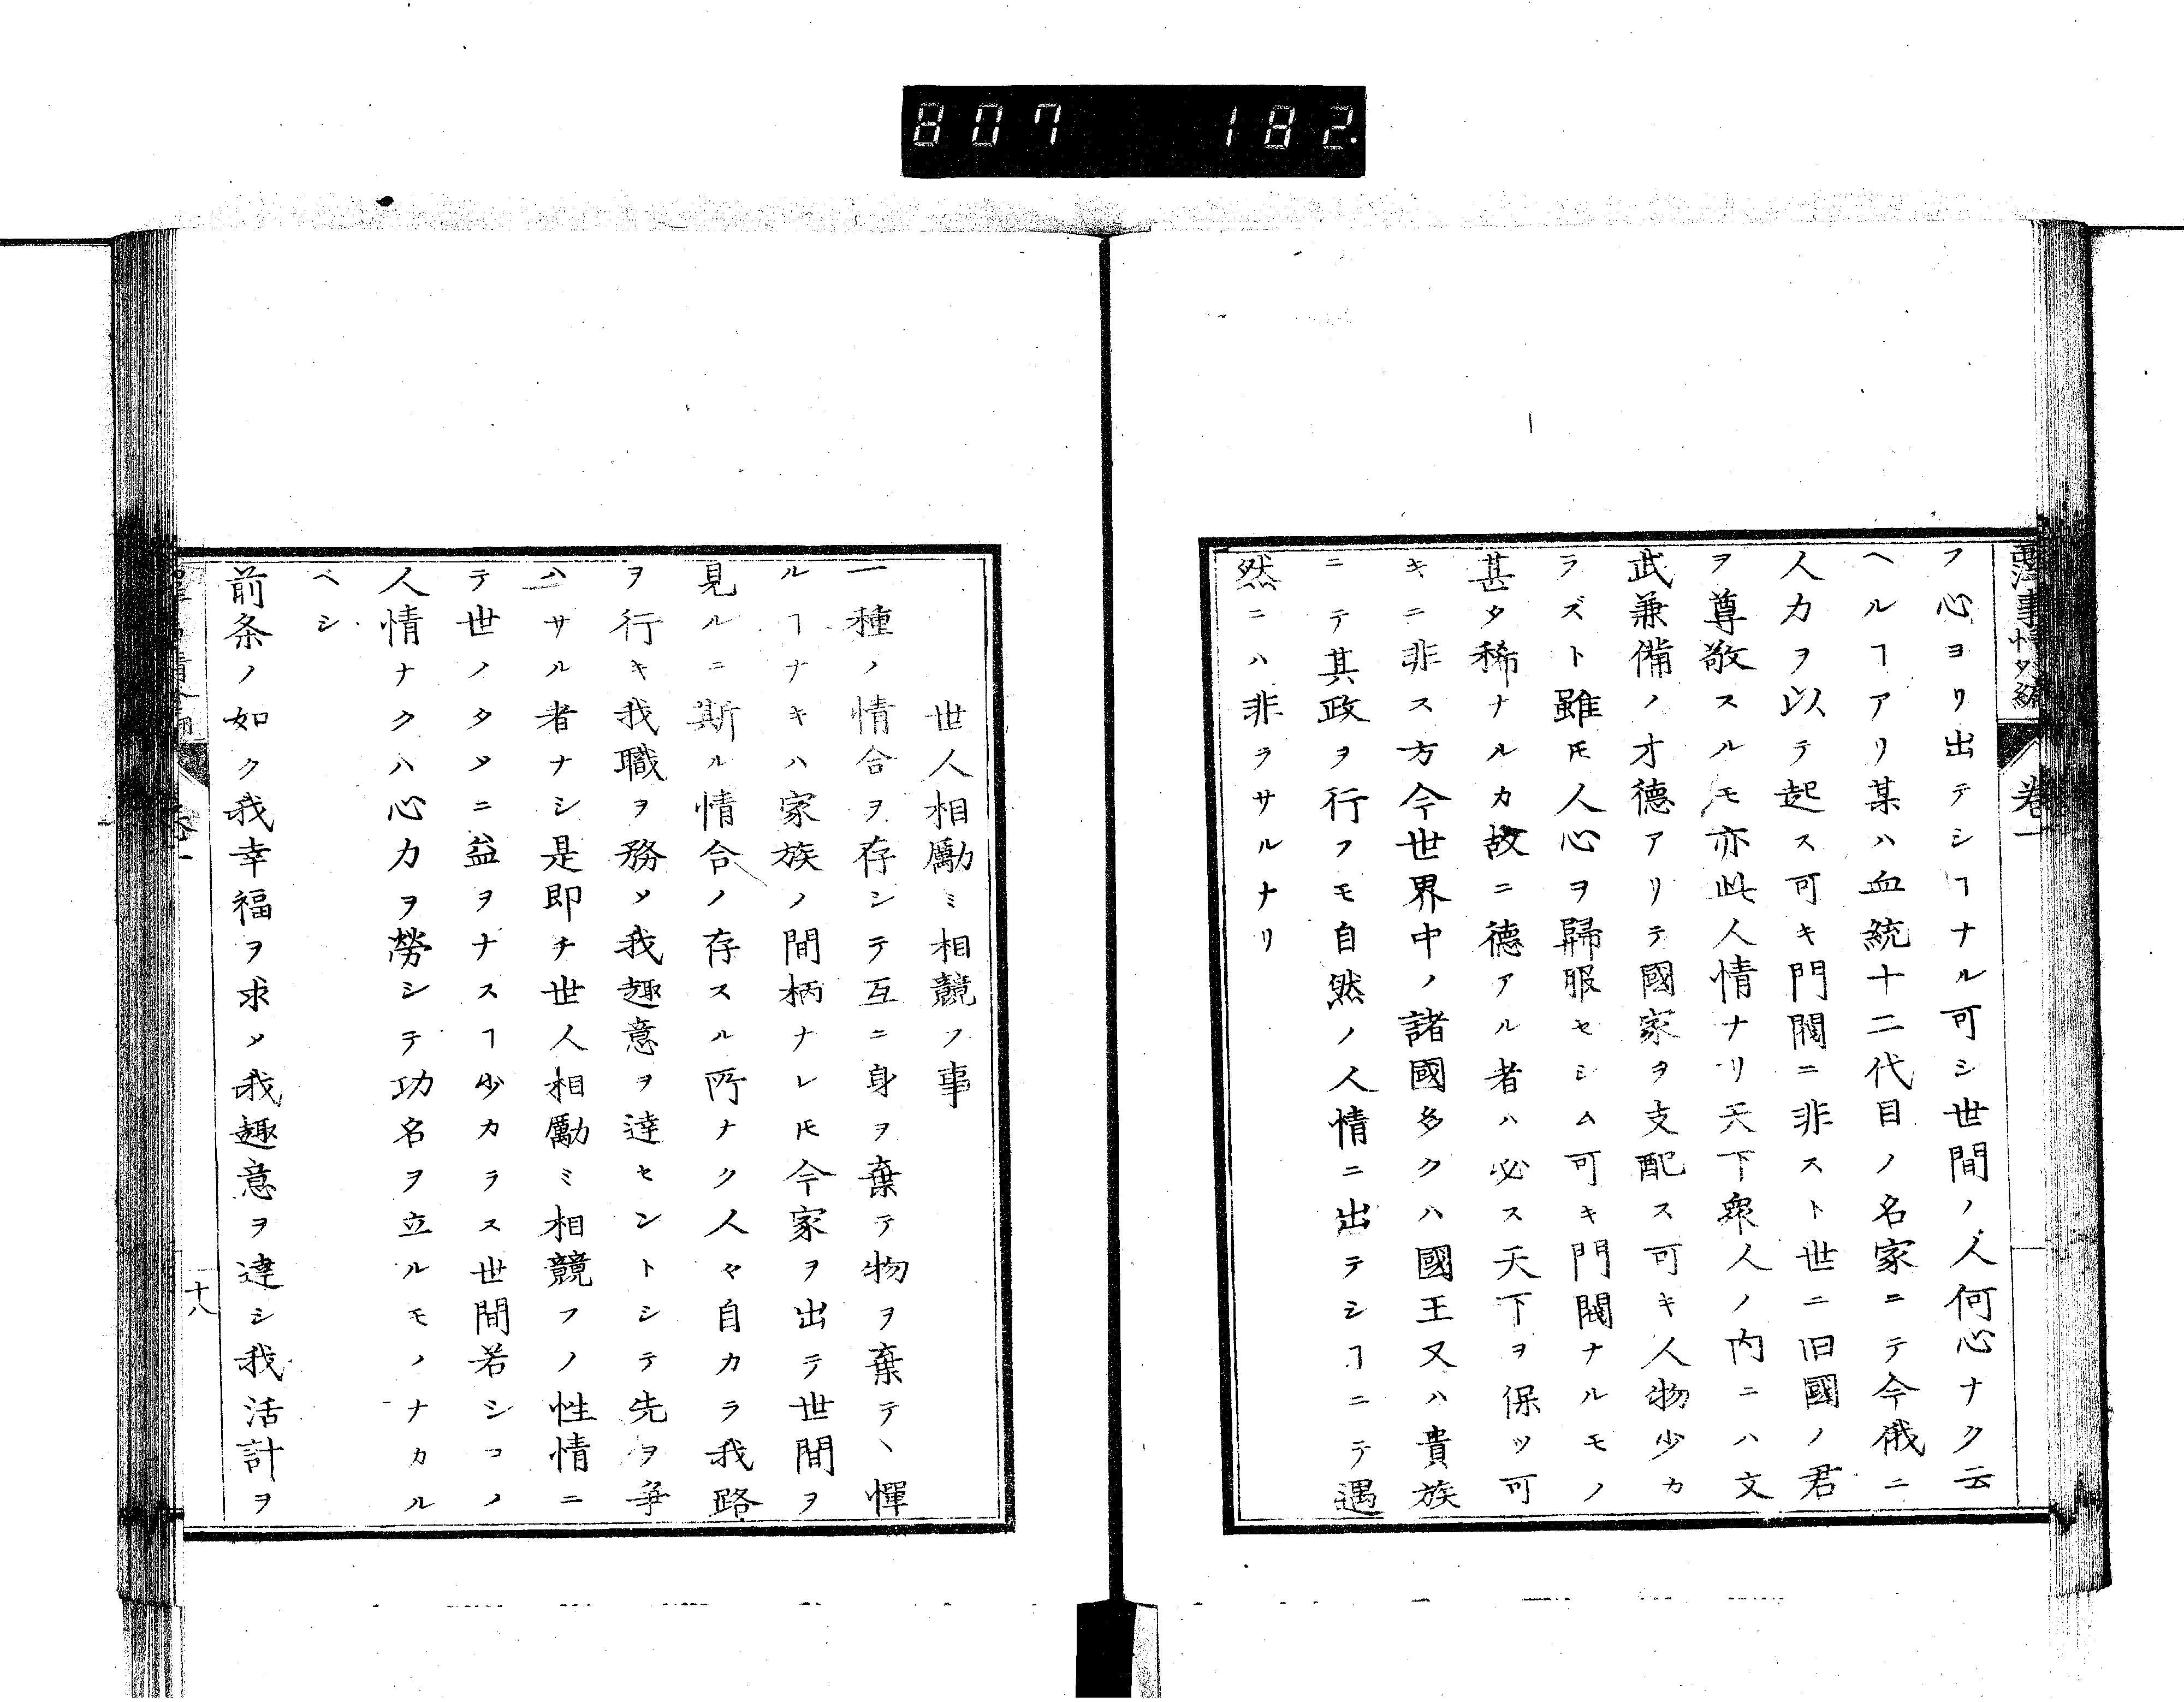 807 182.
西洋事情外編 巻一
フ心ヨリ出テシヿナル可シ世間ノ人何心ナク云
ヘルヿアリ某ハ血統十二代目ノ名家ニテ今俄ニ
人力ヲ以テ起ス可キ門閥ニ非スト世ニ旧國ノ君
ヲ尊敬スルモ亦此人情ナリ天下衆人ノ内ニハ文
武兼備ノ才德アリテ國家ヲ支配ス可キ人物少カ
ラズト雖𪜈人心ヲ歸服セシム可キ門閥ナルモノ
甚タ稀ナルカ故ニ德アル者ハ必ス天下ヲ保ツ可
キニ非ス方今世界中ノ諸國多クハ國王又ハ貴族
ニテ其政ヲ行フモ自然ノ人情ニ出テシヿニテ遇
然ニハ非ラサルナリ
世人相勵ミ相競フ事
一種ノ情合ヲ存シテ互ニ身ヲ棄テ物ヲ棄テヽ憚
ルヿナキハ家族ノ間柄ナレ𪜈今家ヲ出テ世間ヲ
見ルニ斯ル情合ノ存スル所ナク人々自カラ我路
ヲ行キ我職ヲ務メ我趣意ヲ達セントシテ先ヲ爭
ハサル者ナシ是即チ世人相勵ミ相競フノ性情ニ
テ世ノタメニ益ヲナスヿ少カラス世間若シコノ
人情ナクハ心力ヲ勞シテ功名ヲ立ルモノナカル
ベシ
前条ノ如ク我幸福ヲ求メ我趣意ヲ達シ我活計ヲ
十八